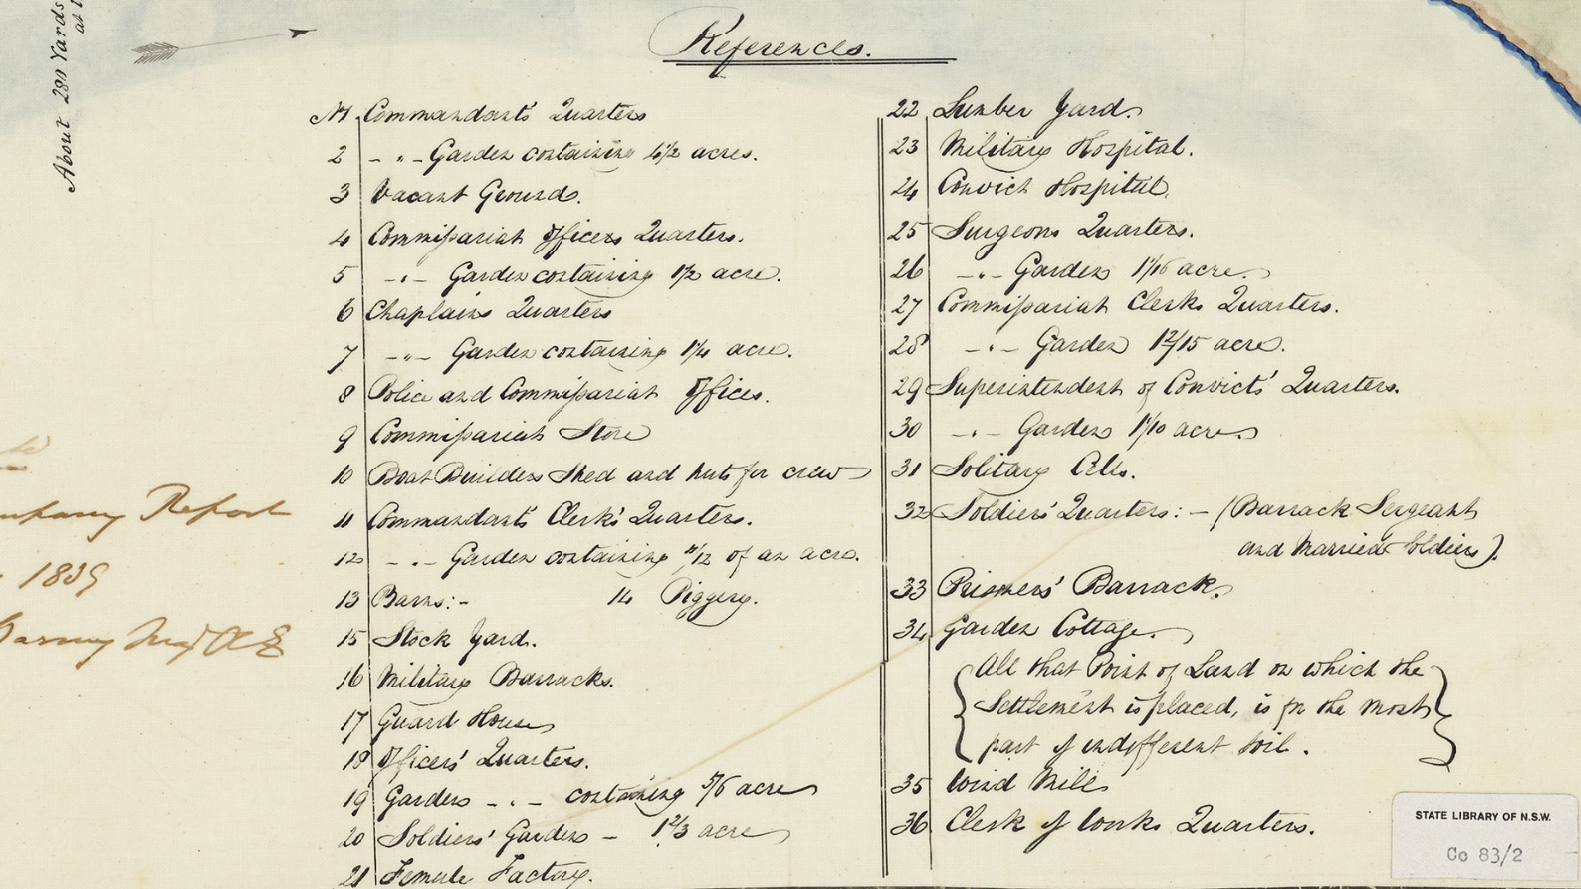 References.
No 1 Commandant's Quarters
2 - " - Garden containing 4 1/2 acres.
3 Vacant Ground.
4 Commissariat Officers Quarters.
5 - " - Garden containing 1 1/2 acre.
6 Chaplains Quarters
7 - " - Garden containing 1 1/4 acre.
8 Police and Commissariat Offices.
9 Commissariat Store
10 Boat Builders Shed and huts for crew
11 Commandant's Clerk's Quarters.
12 - " - Garden containing 11/12 of an acre.
13 Barns:- 14 Piggery.
15 Stock Yard.
16 Military Barracks.
17 Guard House
18 Officers' Quarters.
19 Gardens - " - containing 5/6 acre
20 Soldiers' Gardens - 1 2/3 acre
21 Female Factory.
22 Lumber Yard.
23 Military Hospital.
24 Convict Hospital.
25 Surgeons Quarters.
26 - " - Garden 1 1/16 acre.
27 Commissariat Clerks Quarters.
28 - " - Garden 12/15 acre.
29 Superintendent of Convicts' Quarters.
30 - " - Gardens 1 1/10 acre.
31 Solitary Cells.
32 Soldiers' Quarters: - (Barrack Sergeant
and Married Soldiers).
33 Prisoners' Barrack.
34 Garden Cottage.
{All that Point of Land on which the
Settlement is placed, is for the most
part of indifferent soil.}
35 Wind Mill
36 Clerk of Works Quarters.
About 280 Yards
at
Report
1839
Barney
STATE LIBRARY OF N.S.W.
Cc 83/2